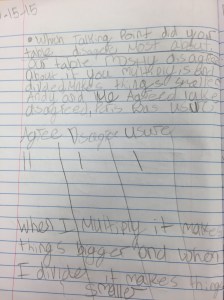 -15-15
• Which Talking Point did your
table disagree most about
our table mostly disagree
about if you multiply is and
divided makes things smaller
Andy and me Agreed
disagreed, was UsURe
Agree Disagree Usure
|| | |
When I Multiply it make
things bigger and when
I divided it makes things
Smaller